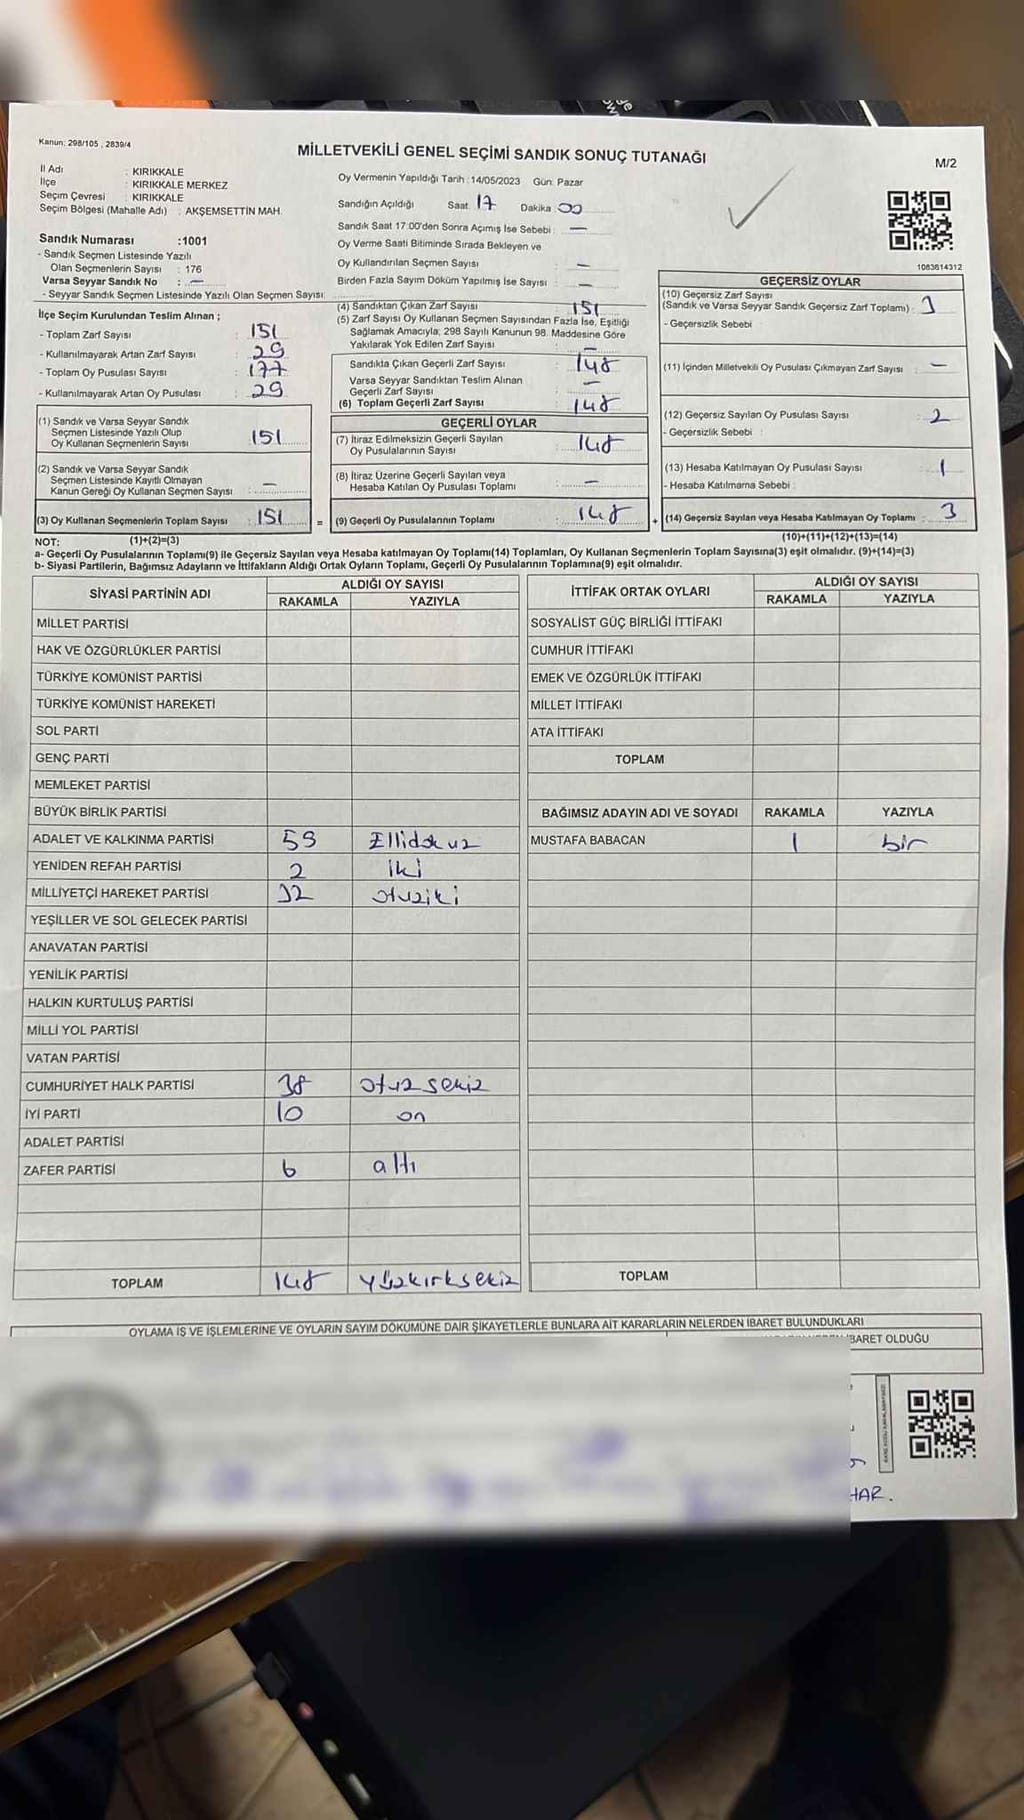 Kanun: 298/105 , 2839/4
MİLLETVEKİLİ GENEL SEÇİMİ SANDIK SONUÇ TUTANAĞI
M/2
İl Adı : KIRIKKALE
İlçe : KIRIKKALE MERKEZ
Seçim Çevresi : KIRIKKALE
Seçim Bölgesi (Mahalle Adı) : AKŞEMSETTİN MAH.
Sandık Numarası :1001
- Sandık Seçmen Listesinde Yazılı
Olan Seçmenlerin Sayısı : 176
Varsa Seyyar Sandık No : —
- Seyyar Sandık Seçmen Listesinde Yazılı Olan Seçmen Sayısı:
Oy Vermenin Yapıldığı Tarih :14/05/2023 Gün: Pazar
Sandığın Açıldığı Saat 17 Dakika 00
Sandık Saat 17:00'den Sonra Açımış İse Sebebi : —
Oy Verme Saati Bitiminde Sırada Bekleyen ve
Oy Kullandırılan Seçmen Sayısı : —
Birden Fazla Sayım Döküm Yapılmış İse Sayısı : —
1083614312
İlçe Seçim Kurulundan Teslim Alınan ;
- Toplam Zarf Sayısı : 151
- Kullanılmayarak Artan Zarf Sayısı : 29
- Toplam Oy Pusulası Sayısı : 177
- Kullanılmayarak Artan Oy Pusulası : 29
(1) Sandık ve Varsa Seyyar Sandık
Seçmen Listesinde Yazılı Olup
Oy Kullanan Seçmenlerin Sayısı 151
(2) Sandık ve Varsa Seyyar Sandık
Seçmen Listesinde Kayıtlı Olmayan
Kanun Gereği Oy Kullanan Seçmen Sayısı —
(3) Oy Kullanan Seçmenlerin Toplam Sayısı : 151 =
(4) Sandıktan Çıkan Zarf Sayısı : 151
(5) Zarf Sayısı Oy Kullanan Seçmen Sayısından Fazla İse, Eşitliği
Sağlamak Amacıyla, 298 Sayılı Kanunun 98. Maddesine Göre
Yakılarak Yok Edilen Zarf Sayısı : —
Sandıkta Çıkan Geçerli Zarf Sayısı : 148
Varsa Seyyar Sandıktan Teslim Alınan
Geçerli Zarf Sayısı : —
(6) Toplam Geçerli Zarf Sayısı : 148
GEÇERLİ OYLAR
(7) İtiraz Edilmeksizin Geçerli Sayılan
Oy Pusulalarının Sayısı : 148
(8) İtiraz Üzerine Geçerli Sayılan veya
Hesaba Katılan Oy Pusulası Toplamı : —
(9) Geçerli Oy Pusulalarının Toplamı : 148 +
GEÇERSİZ OYLAR
(10) Geçersiz Zarf Sayısı
(Sandık ve Varsa Seyyar Sandık Geçersiz Zarf Toplamı) :
- Geçersizlik Sebebi :
(11) İçinden Milletvekili Oy Pusulası Çıkmayan Zarf Sayısı : —
(12) Geçersiz Sayılan Oy Pusulası Sayısı : 2
- Geçersizlik Sebebi :
(13) Hesaba Katılmayan Oy Pusulası Sayısı : 1
- Hesaba Katılmama Sebebi :
(14) Geçersiz Sayılan veya Hesaba Katılmayan Oy Toplamı : 3
NOT: (1)+(2)=(3)
(10)+(11)+(12)+(13)=(14)
a- Geçerli Oy Pusulalarının Toplamı(9) ile Geçersiz Sayılan veya Hesaba katılmayan Oy Toplamı(14) Toplamları, Oy Kullanan Seçmenlerin Toplam Sayısına(3) eşit olmalıdır. (9)+(14)=(3)
b- Siyasi Partilerin, Bağımsız Adayların ve İttifakların Aldığı Ortak Oyların Toplamı, Geçerli Oy Pusulalarının Toplamına(9) eşit olmalıdır.
SİYASİ PARTİNİN ADI
ALDIĞI OY SAYISI
RAKAMLA YAZIYLA
MİLLET PARTİSİ
HAK VE ÖZGÜRLÜKLER PARTİSİ
TÜRKİYE KOMÜNİST PARTİSİ
TÜRKİYE KOMÜNİST HAREKETİ
SOL PARTİ
GENÇ PARTİ
MEMLEKET PARTİSİ
BÜYÜK BİRLİK PARTİSİ
ADALET VE KALKINMA PARTİSİ 59 Ellidokuz
YENİDEN REFAH PARTİSİ 2 iki
MİLLİYETÇİ HAREKET PARTİSİ 32 otuziki
YEŞİLLER VE SOL GELECEK PARTİSİ
ANAVATAN PARTİSİ
YENİLİK PARTİSİ
HALKIN KURTULUŞ PARTİSİ
MİLLİ YOL PARTİSİ
VATAN PARTİSİ
CUMHURİYET HALK PARTİSİ 38 otuzsekiz
İYİ PARTİ 10 on
ADALET PARTİSİ
ZAFER PARTİSİ 6 altı
TOPLAM 148 yüzkırksekiz
İTTİFAK ORTAK OYLARI
ALDIĞI OY SAYISI
RAKAMLA YAZIYLA
SOSYALİST GÜÇ BİRLİĞİ İTTİFAKI
CUMHUR İTTİFAKI
EMEK VE ÖZGÜRLÜK İTTİFAKI
MİLLET İTTİFAKI
ATA İTTİFAKI
TOPLAM
BAĞIMSIZ ADAYIN ADI VE SOYADI RAKAMLA YAZIYLA
MUSTAFA BABACAN 1 bir
TOPLAM
OYLAMA İŞ VE İŞLEMLERİNE VE OYLARIN SAYIM DÖKÜMÜNE DAİR ŞİKAYETLERLE BUNLARA AİT KARARLARIN NELERDEN İBARET BULUNDUKLARI
İBARET OLDUĞU
HAR.